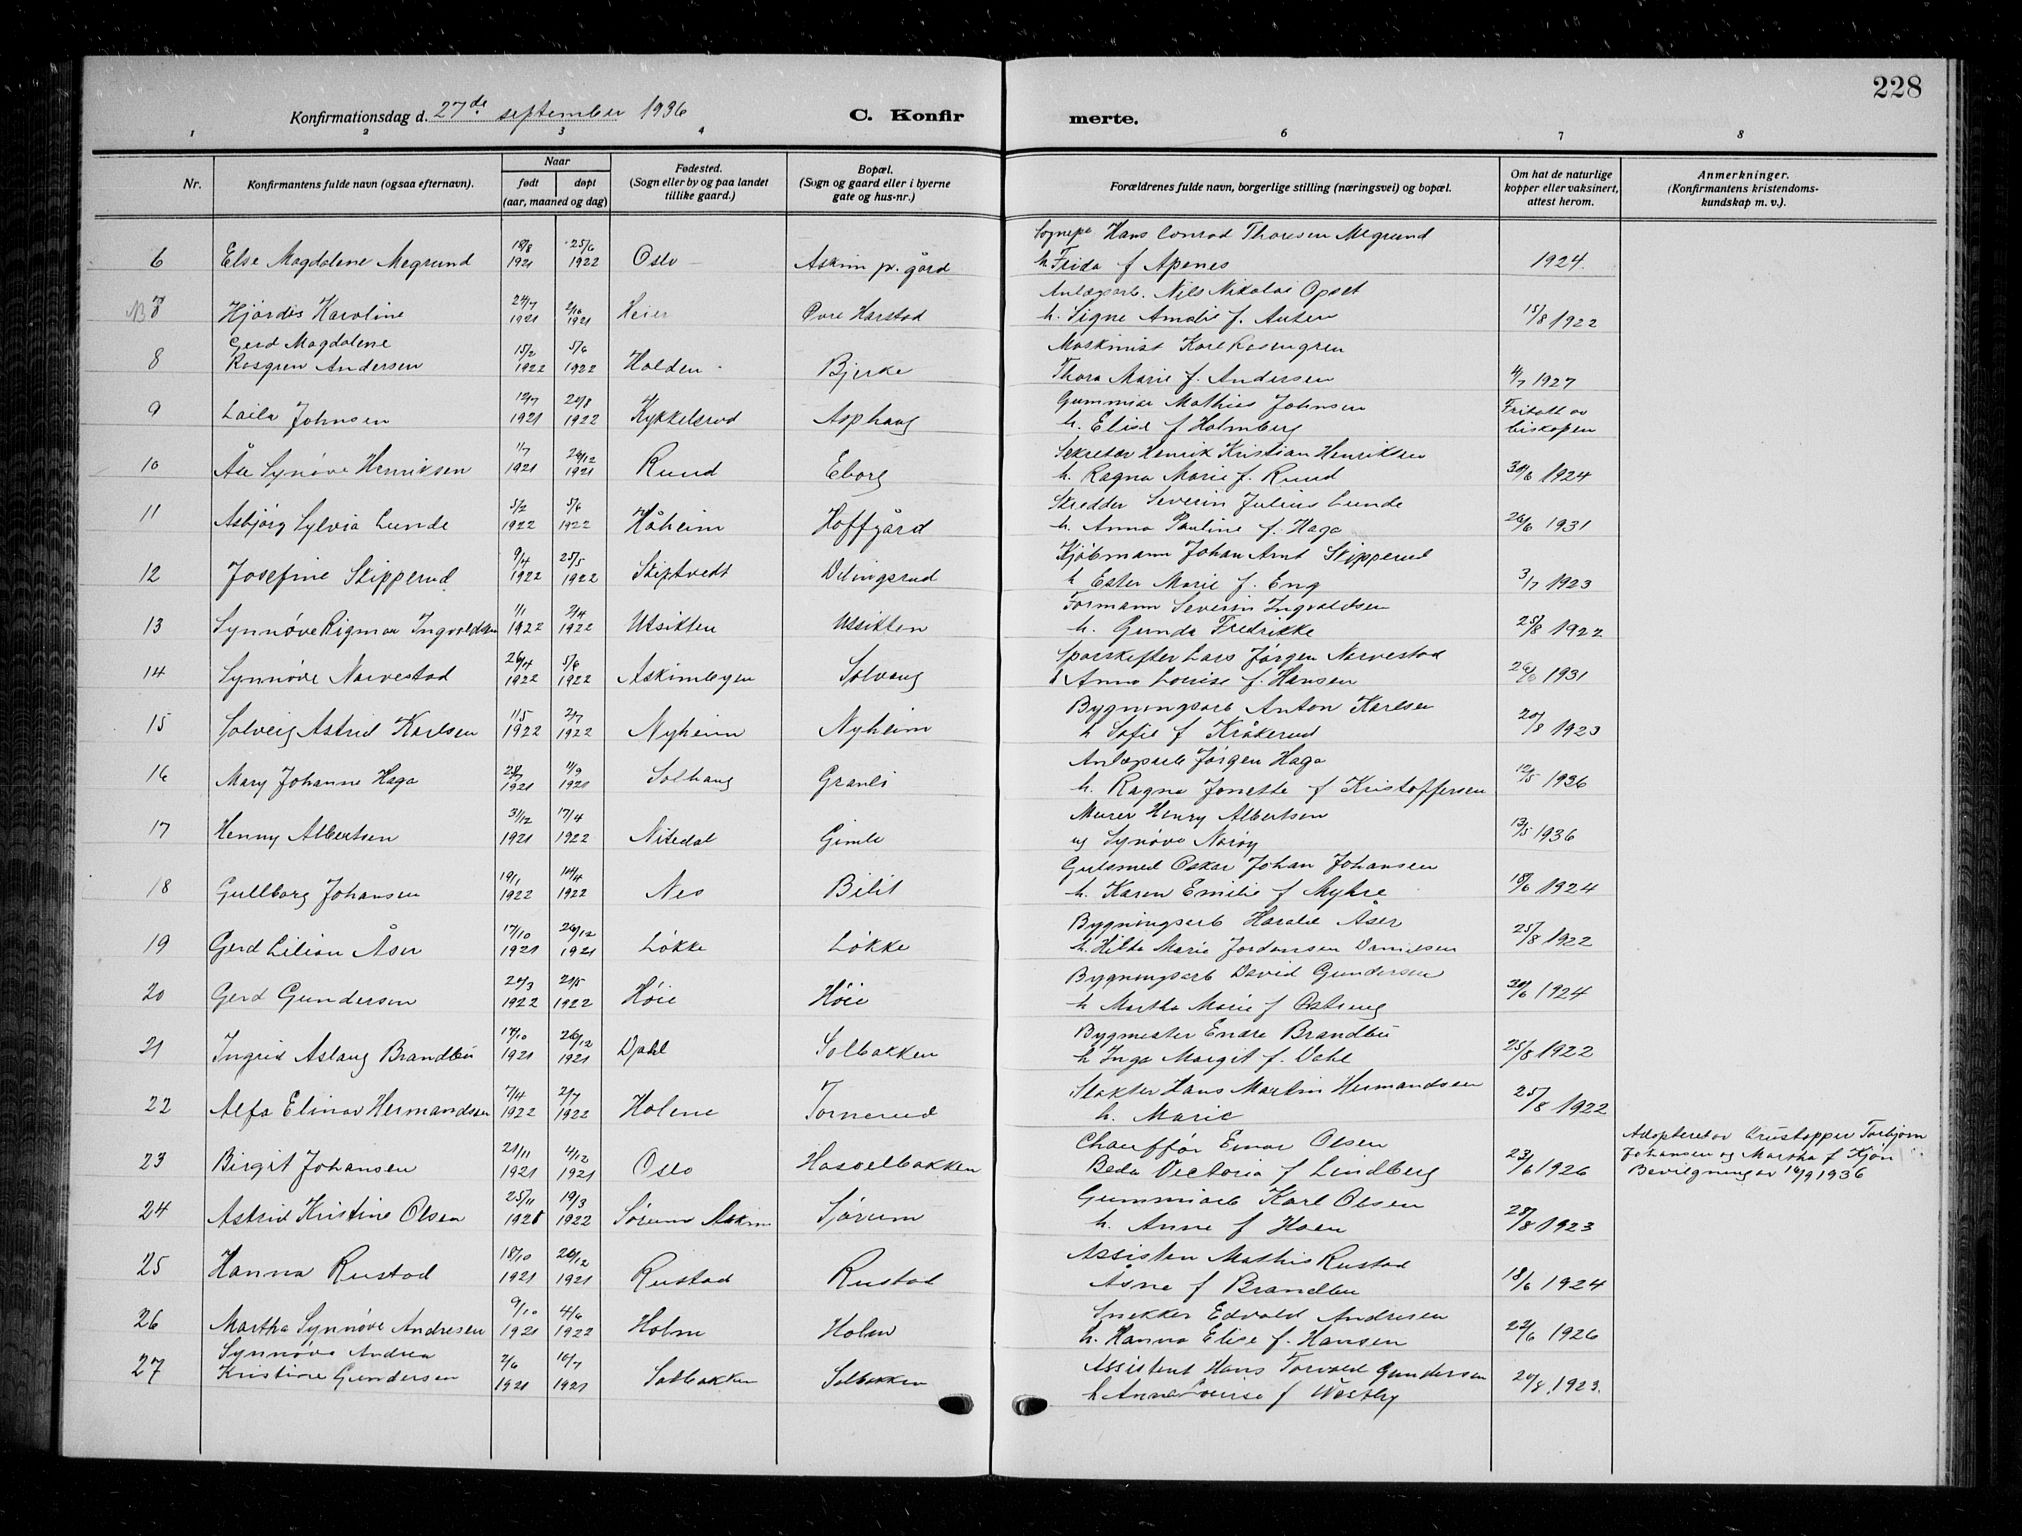 228
Konfirmationsdag d. 27de september 1936 C. Konfirmerte.
1 2 3 4 6 7 8
Nr. Konfirmantens fulde navn (ogsaa efternavn). Naar født døpt (aar, maaned og dag) Fødested. (Sogn eller by og paa landet tillike gaard.) Bopæl. (Sogn og gaard eller i byerne gate og hus-nr.) Forældrenes fulde navn, borgerlige stilling (næringsvei) og bopæl. Om hat de naturlige kopper eller vaksinert, attest herom. Anmerkninger. (Konfirmantens kristendomskundskap m. v.).
Sognepr Hans Conrad Thoresen Megrund
6 Else Magdalene Megrund 18/8 1921 25/6 1922 Oslo Askim pr. gård h Frida f Apenes 1924.
Anlægsarb. Nils Nikolai Opset
7 Hjørdis Karoline 24/7 1921 2/10 1921 Heier Øvre Harstad h. Signe Amalie f. Auten 15/8 1922
Gerd Magdalene Maskinist Karl Rosengren
8 Rosgren Andersen 15/2 1922 5/6 1922 Halden Bjerke Thora Marie f. Andersen 4/7 1927
Gummiar Mathias Johnsen
9 Laila Johnsen 12/7 1921 20/8 1922 Kykkelsrud Asphaug h. Elise f Holmberg Fritatt av biskopen
Sekretær Henrik Kristian Henriksen
10 Åse Synøve Henriksen 1/7 1921 26/12 1921 Ruud Eborg h. Ragna Marie f. Ruud 30/6 1924
Skredder Severin Julius Lunde
11 Asbjørg Sylvia Lunde 5/2 1922 5/6 1922 Håheim Hoffgård h. Anna Pauline f. Haga 26/6 1931
Kjøbmann Johan Arnt Skipperud
12 Josefine Skipperud 9/4 1922 25/5 1922 Skiptvedt Dilingsrud h Ester Marie f. Eng 3/7 1923
Formann Severin Ingvaldsen
13 Synnøve Rigmor Ingvaldsen 1/1 1922 2/4 1922 Utsikten Utsikten h. Gunda Fredrikke 25/8 1922
Sporskifter Lars Jørgen Narvestad
14 Synnøve Narvestad 26/4 1922 5/6 1922 Askimbyen Solvang h Anna Louise f. Hansen 26/6 1931
Bygningsarb Anton Karlsen
15 Solveig Astrid Karlsen 11/5 1922 2/7 1922 Nyheim Nyheim h Sofie f Kråkerud 20/8 1923
Anlægsarb Jørgen Haga
16 Mary Johanne Haga 28/7 1921 11/9 1921 Solhaug Granli h. Ragna Jonette f Kristoffersen 12/5 1936
Murer Henry Albertsen
17 Henny Albertsen 31/12 1921 17/4 1922 Nitedal Gimle og Synøve Norøy 13/5 1936
Gulsmed Oskar Johan Johansen
18 Gullborg Johansen 19/1 1922 14/4 1922 Nes Bilit h. Karen Emilie f Myhre 18/6 1924
Bygningsarb Harald Åser
19 Gerd Lilian Åser 17/10 1921 26/12 1921 Løkke Løkke h. Hilda Marie Jordansen Danielsen 25/8 1922
Bygningsarb David Gundersen
20 Gerd Gundersen 20/3 1922 20/5 1922 Høie Høie h Martha Marie f Østeng 30/6 1924
Bygmester Endre Brandbu
21 Ingrid Aslaug Brandbu 17/10 1921 26/12 1921 Dahl Solbakken h Inga Margit f. Dahl 25/8 1922
Slakter Hans Martin Hermandsen
22 Alfa Elinor Hermandsen 7/4 1922 2/7 1922 Holene Tornerud h. Marie 25/8 1922
Chauffør Einar Olsen Adopteret av Kristopper Torbjørn
23 Birgit Johansen 21/11 1921 4/12 1921 Oslo Hasselbakken Beda Victoria f Lindberg 23/6 1926 Johansen og Martha f Kjøn
Gummiarb Karl Olsen Bevilgning av 16/9 1936
24 Astrid Kristine Olsen 25/11 1921 19/3 1922 Sørum Askim Sørum h. Anne f Haen 28/8 1923
Assisten Mathis Rustad
25 Hanna Rustad 18/10 1921 26/12 1921 Rustad Rustad Åsne f Brandbu 18/6 1924
Snekker Edvald Andresen
26 Martha Synnøve Andresen 9/10 1921 4/6 1922 Holm Holm h. Hanna Elise f. Hansen 22/6 1926
Synnøve Andrea Assistent Hans Torvald Gundersen
27 Kristine Gundersen 2/6 1921 10/7 1921 Solbakken Solbakken h Anne Lovise f Westby 20/8 1923.